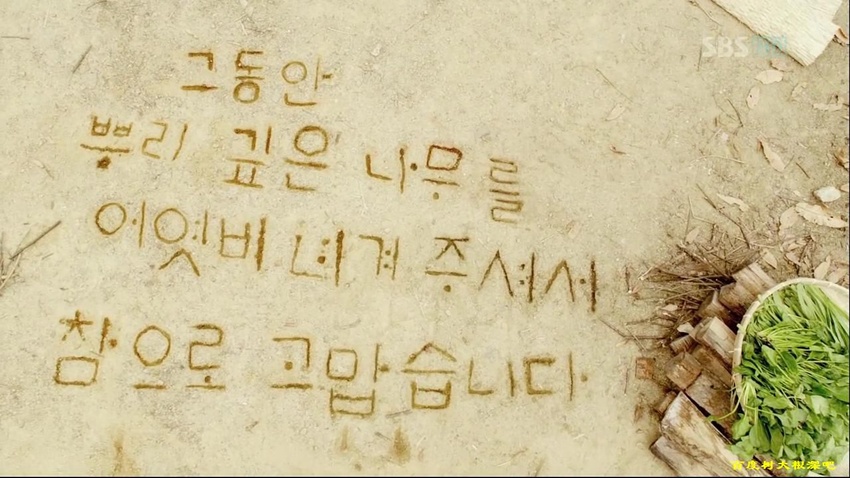 SBS
그동안
뿌리 깊은 나무를
어엿비 녀겨 주셔서
참으로 고맙습니다
百度树大根深吧